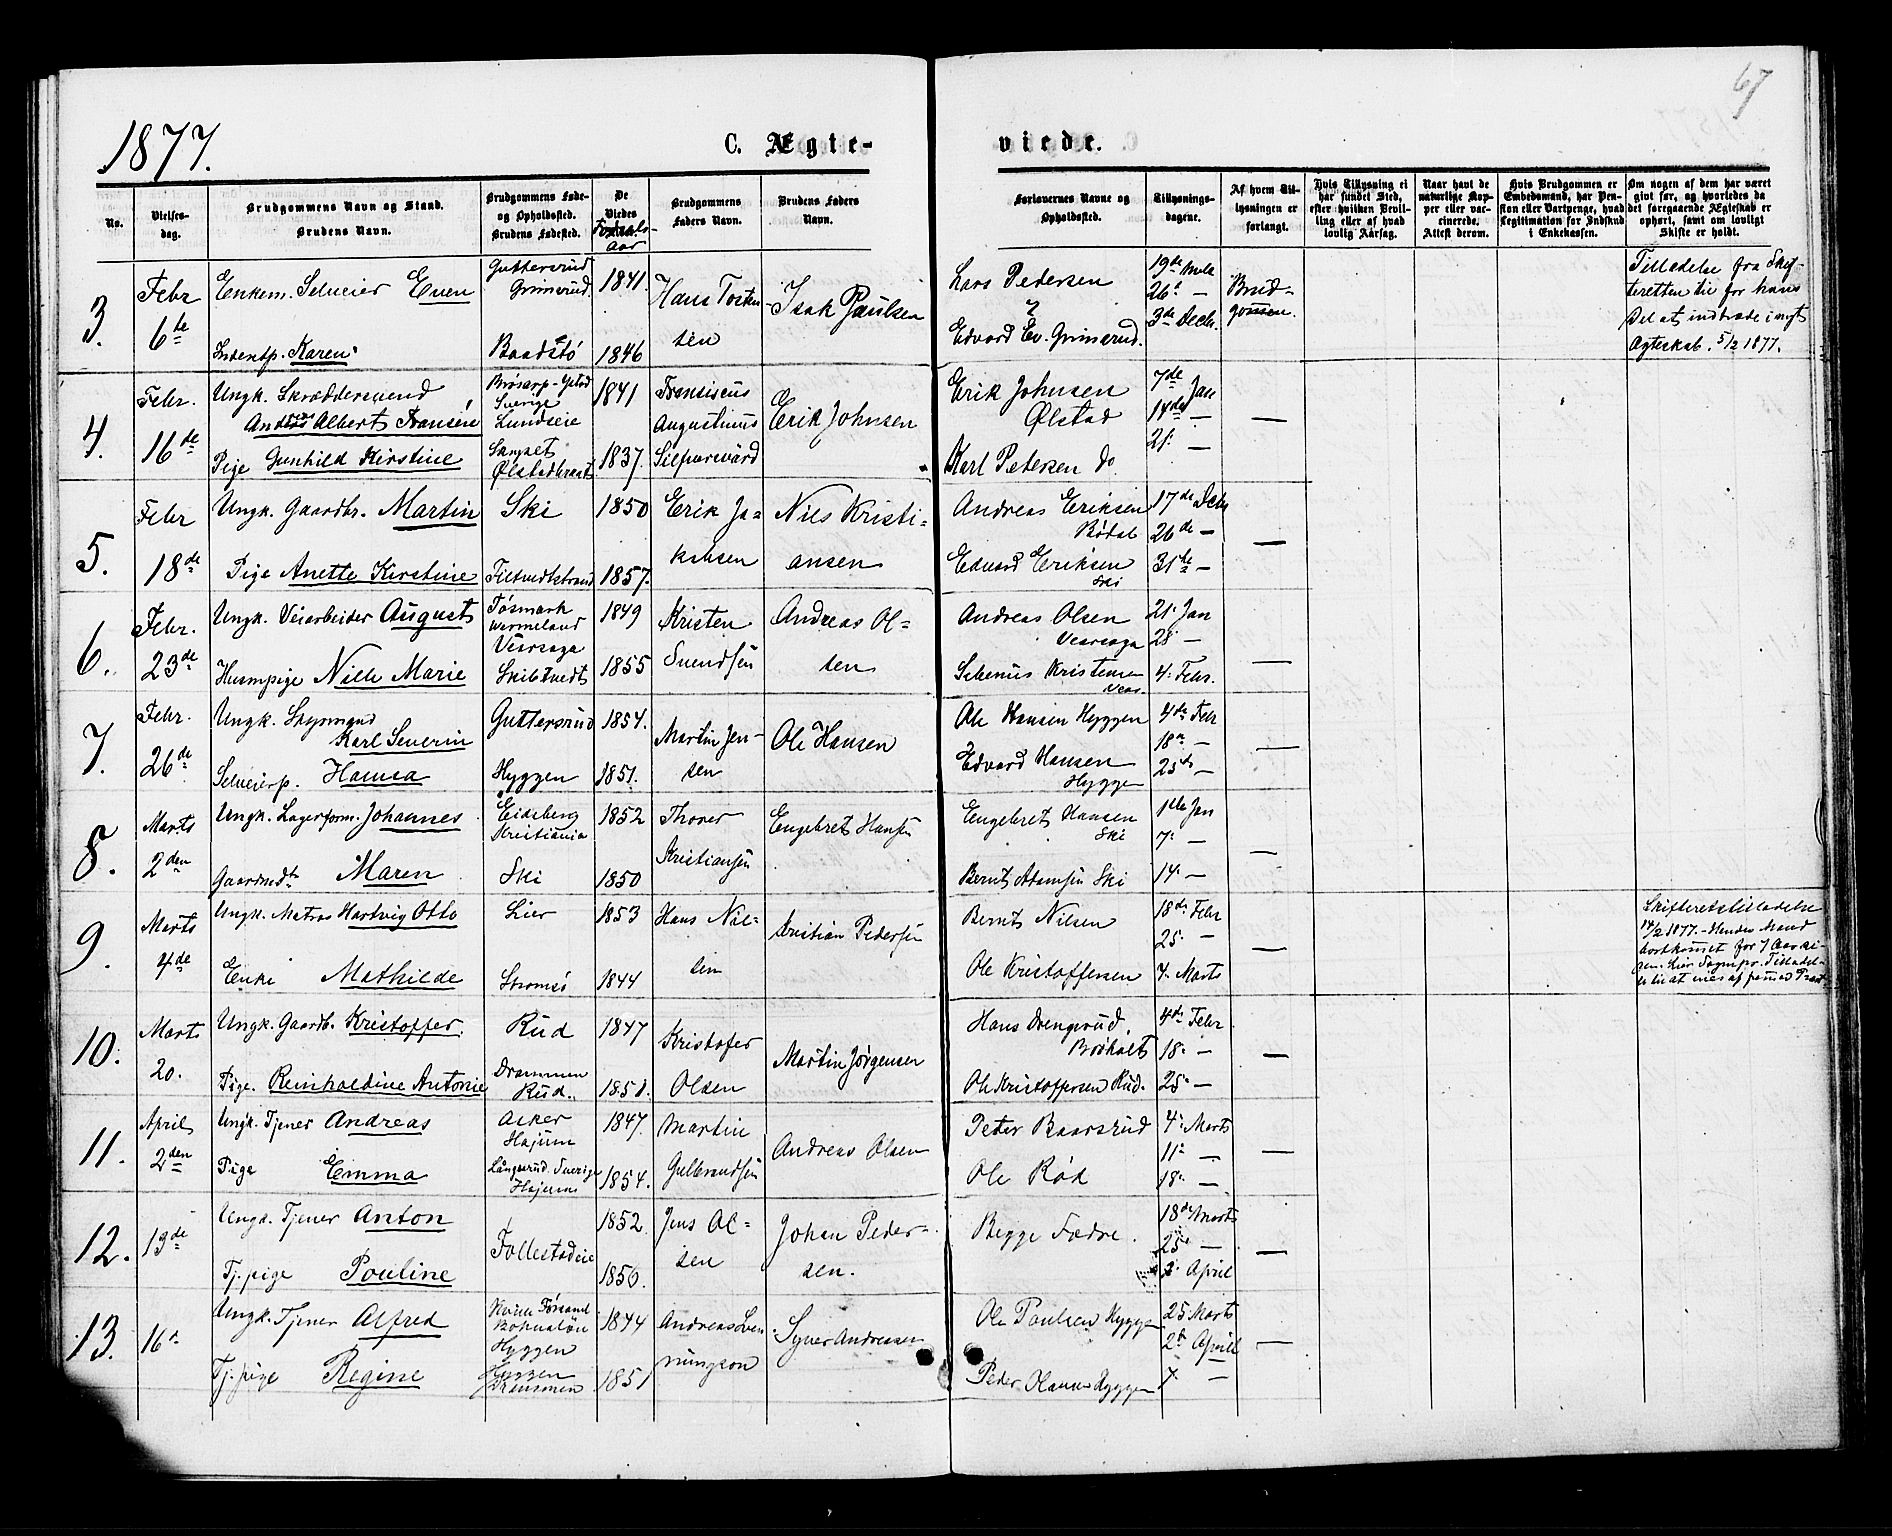 67
1877.
C. Ægte-
viede.
No.
Vielses-
dag.
Brudgommens Navn og Stand.
Brudens Navn.
Brudgommens Føde-
og Opholdssted.
Brudens Fødested.
De
Viedes
Fødsels-
aar
Brudgommens
Faders Navn.
Brudens Faders
Navn.
Forlovernes Navne og
Opholdssted.
Tillysnings-
dagene.
Af hvem Til-
lysningen er
forlangt.
Hvis Tillysning ei
har fundet Sted,
efter hvilken Bevil-
ling eller af hvad
lovlig Aarsag.
Naar havt de
naturlige Kop-
per eller vac-
cinerede,
Attest derom.
Hvis Brudgommen er
Embedsmand, har Pen-
sion eller Vartpenge, hvad
Legitimation for Indskud
i Enkekassen.
Om nogen af dem har været
gift før, og hvorledes da
det foregaaende Ægteskab er
ophørt, samt om lovligt
Skifte er holdt.
3.
Febr
6te
Enkem. Selveier Even
Karen
Guttersrud
Grimsrud.
Baadstø
1841.
1846
Hans Tosten-
sen
Isak Paulsen
Lars Pedersen
Edvard Ev. Grimsrud.
19de
26 —
3de Decbr.
Brud-
gommen.
Tilladelse fra Skif-
teretten til for hans
Del at indtræde i nyt
Ægteskab. 5/2 1877.
4.
Febr.
16de
Ungk. Skræddersvend
Albert Fransén
Pige Gunhild Kirstine
Brösarp - Ystad
Sverige
Lundeie
Ølstad
1841
1837.
Franciscus
Augustinus
Silfversvärd
Erik Johnsen
Erik Johnsen
Ølstad
Karl Petersen do
7de Jan
14de —
21. —
—
5.
Febr
18de
Ungk. Gaardbr. Martin
Pige Anette Kirstine
Ski
Filtvedtstrand
1850
1857.
Erik Ja-
kobsen
Nils Kristi-
ansen
Andreas Eriksen
Bødal
Edvard Eriksen
Ski
17de Decbr
26de —
31te —
—
6.
Febr.
23de
Ungk. Veiarbeider August
Huusmpige Nille Marie
Fösmark
Wermeland
Vearsaga
Skibtvedt
1849
1855
Kristen
Svendsen
Andreas Ol-
sen
Andreas Olsen
Vearsaga
Kristensen
21. Jan
28 —
4. Febr.
—
7.
Febr.
26de
Ungk.
Karl Severin
Selveierp. Hanna
Guttersrud
Hyggen
1854.
1851.
Martin Jen-
sen
Ole Hansen
Ole Hansen Hyggen
Edvard Hansen
Hyggen
4de Febr
18 —
25de —
—
8.
Marts
2den
Ungk. Lagerform. Johannes
Maren
Eidsberg
Kristiania
Ski
1852
1850
Thorer
Kristiansen
Engebret Hansen
Engebret Hansen
Ski
Bernt Adamsen Ski
1ste Jan
7. —
14. —
—
9.
Marts
4de
Ungk. Matros Hartvig Otto
Enke Mathilde
Lier
Strømsø
1853
1844
Hans Niel-
sen
Kristian Pedersen
Bernt Nilsen
Ole Kristoffersen
18de Febr
25. —
4. Marts
—
Skifteretstilladelse
14/2 1877. - Hendes Mand
bortkommet for 7 Aar si-
10.
Marts
20.
Ungk. Gaardb. Kristoffer.
Pige. Reinholdine Antonie
Rud
Drammen
Rud.
1847
1851.
Kristofer
Olsen
Martin Jørgensen
Hans Drengsrud.
Ole Kristoffersen Rud.
4de Febr
18. —
25. —
—
11.
April
2den
Ungk. Tjener Andreas
Pige Emma
Asker
Højum
Långserud. Sverige
Højum
1847.
1854.
Martin
Gulbrandsen
Andreas Olsen
Peter Baarsrud
Ole Rød
4. Marts
11. —
18. —
—
12.
13de
Ungk. Tjener Anton
Tj.pige Pouline
Follestadeie
1852.
1856.
Jens Ol-
sen
Johan Peder-
sen.
Begge Fædre.
18de Marts
25. —
April
—
13.
16
Ungk. Tjener Alfred
Tj.pige Regine
Bohuslän
Hyggen
Hyggen
Drammen
1844
1851
Andreas
Syver Andreasen
Ole Paulsen Hyggen
Peder Hyggen
25 Marts
2den April
7. —
—